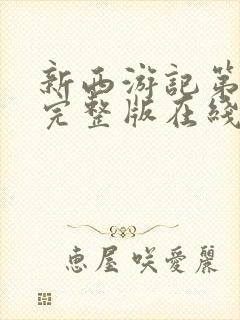 新西游记第
完整版在线
恵屋咲愛麗